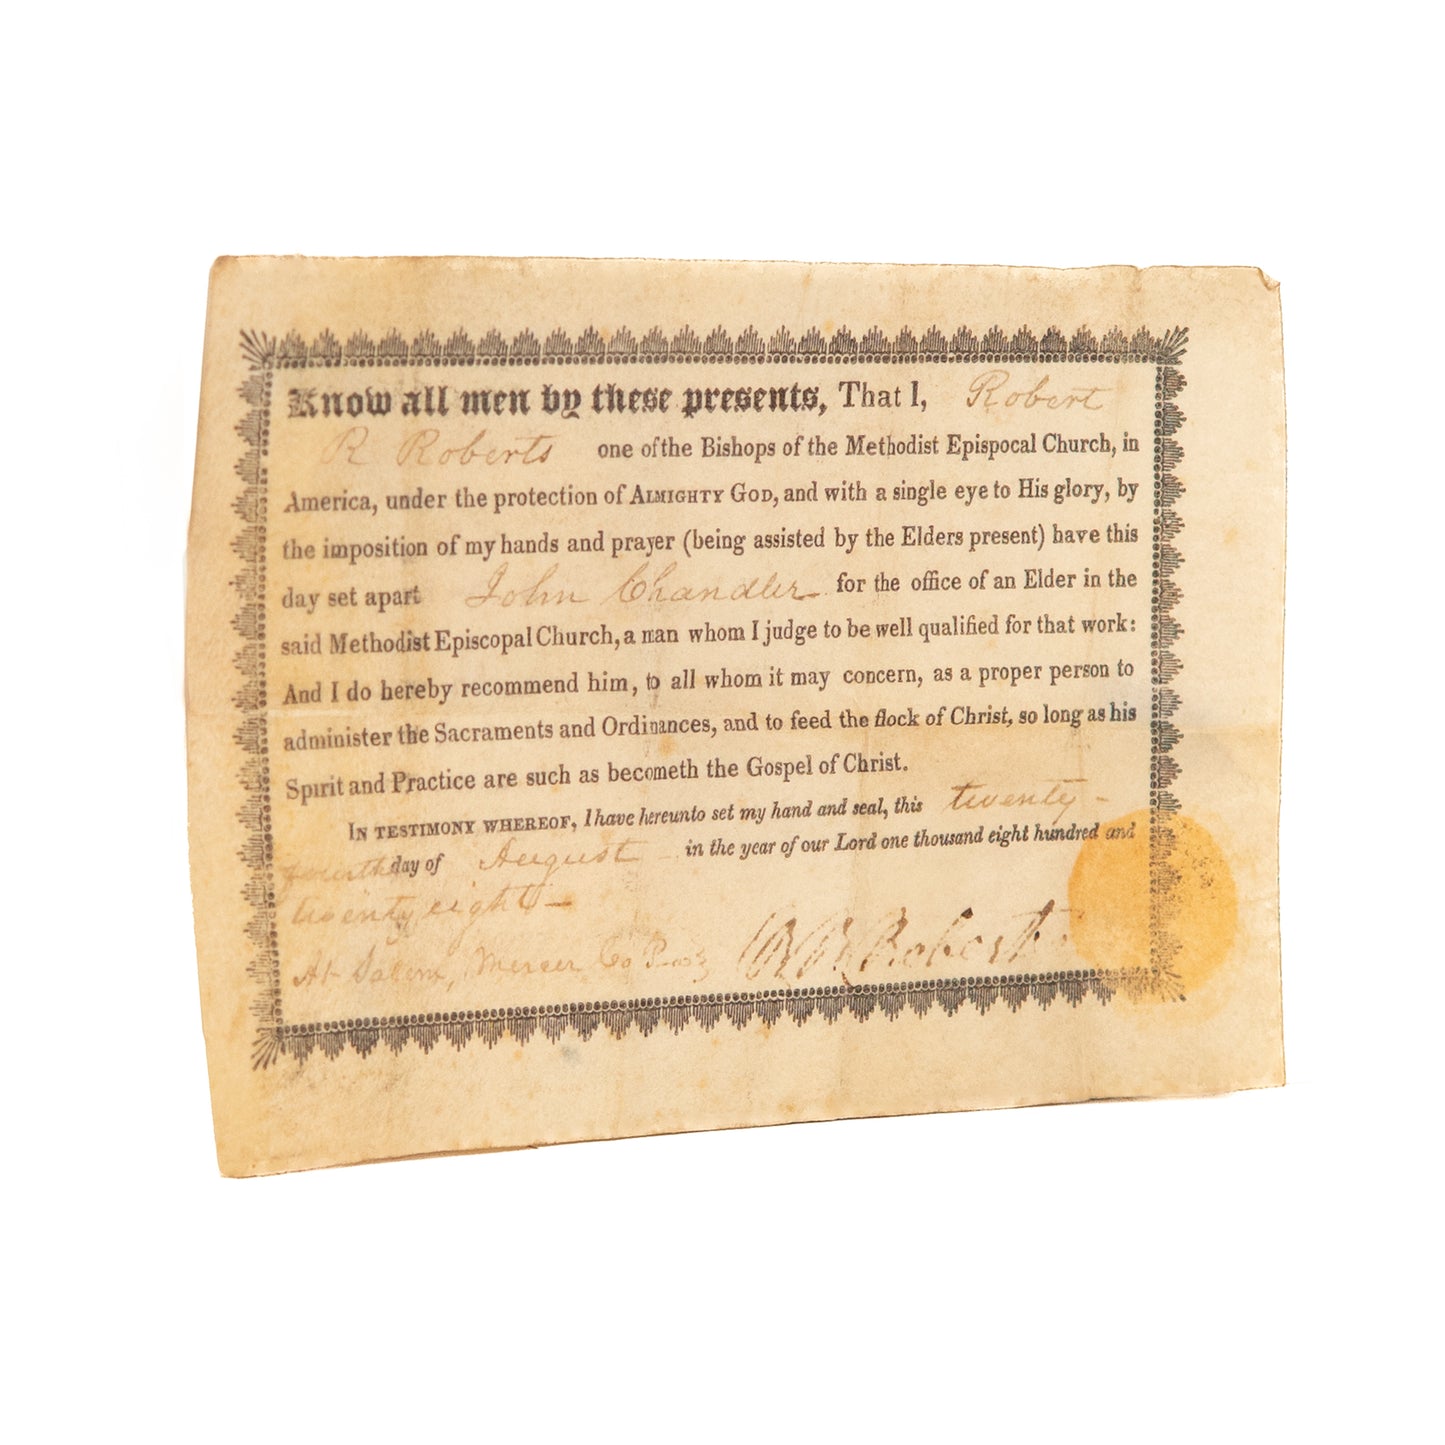 Know all men by these presents, That I, Robert
R Roberts one of the Bishops of the Methodist Epispocal Church, in
America, under the protection of ALMIGHTY GOD, and with a single eye to His glory, by
the imposition of my hands and prayer (being assisted by the Elders present) have this
day set apart John Chandler for the office of an Elder in the
said Methodist Episcopal Church, a man whom I judge to be well qualified for that work:
And I do hereby recommend him, to all whom it may concern, as a proper person to
administer the Sacraments and Ordinances, and to feed the flock of Christ, so long as his
Spirit and Practice are such as becometh the Gospel of Christ.
IN TESTIMONY WHEREOF, I have hereunto set my hand and seal, this twenty-
fourth day of August in the year of our Lord one thousand eight hundred and
twenty eight -
At Salem, Mercer Co R R Roberts